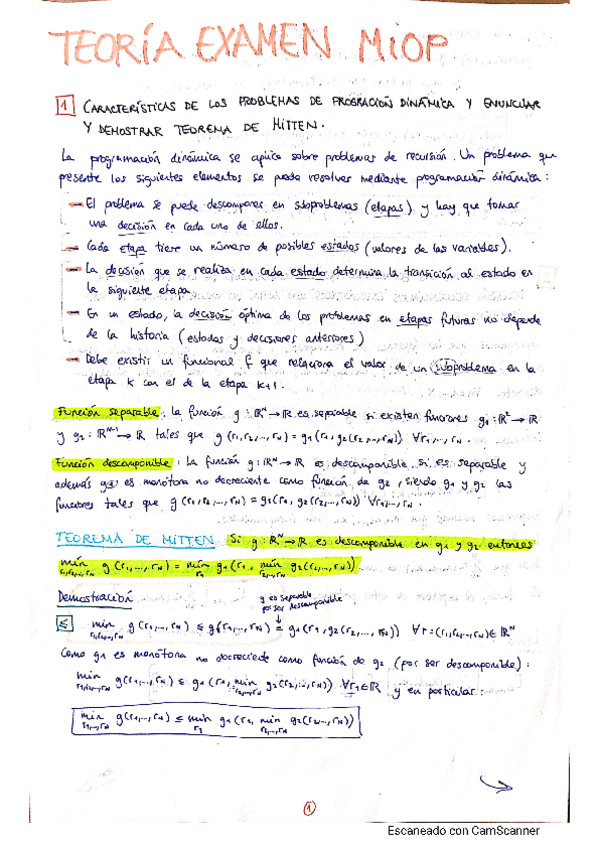 TEORÍA EXAMEN MIOP
1 CARACTERÍSTICAS DE LOS PROBLEMAS DE PROGRACIÓN DINÁMICA Y ENUNCIAR
Y DEMOSTRAR TEOREMA DE MITTEN.
La programación dinámica se aplica sobre problemas de recursión. Un problema que
presente los siguientes elementos se puede resolver mediante programación dinámica:
- El problema se puede descomponer en subproblemas (etapas) y hay que tomar
una decisión en cada uno de ellos.
- Cada etapa tiene un número de posibles estados (valores de las variables).
- La decisión que se realiza en cada estado determina la transición al estado en
la siguiente etapa.
- En un estado, la decisión óptima de los problemas en etapas futuras no depende
de la historia (estados y decisiones anteriores)
- Debe existir un funcional f que relaciona el valor de un subproblema en la
etapa k con el de la etapa k+1.
Función separable: la función g: ℝᴺ→ℝ es separable si existen funciones g₁: ℝ²→ℝ
y g₂: ℝᴺ⁻¹→ℝ tales que g(r₁,r₂,...,rₙ) = g₁(r₁, g₂(r₂,...,rₙ)) ∀r₁,...,rₙ.
Función descomponible: la función g: ℝᴺ→ℝ es descomponible si es separable y
además g₁ es monótona no decreciente como función de g₂, siendo g₁ y g₂ las
funciones tales que g(r₁,r₂,...,rₙ) = g₁(r₁, g₂(r₂,...,rₙ)) ∀r₁,...,rₙ.
TEOREMA DE MITTEN Si g: ℝᴺ→ℝ es descomponible en g₁ y g₂ entonces
mín r₁,r₂,...,rₙ g(r₁,...,rₙ) = mín r₁ g₁(r₁, mín r₂,...,rₙ g₂(r₂,...,rₙ))
Demostración
g es separable
por ser descomponible
≤ mín r₁,r₂,...,rₙ g(r₁,...,rₙ) ≤ g(r₁,...,rₙ) = g₁(r₁, g₂(r₂,...,rₙ)) ∀r=(r₁,r₂,...,rₙ)∈ℝᴺ
Como g₁ es monótona no decreciente como función de g₂ (por ser descomponible):
mín r₁,r₂,...,rₙ g(r₁,...,rₙ) ≤ g₁(r₁, mín r₂,...,rₙ g₂(r₂,...,rₙ)) ∀r₁∈ℝ y en particular:
mín r₁,...,rₙ g(r₁,...,rₙ) ≤ mín r₁ g₁(r₁, mín r₂,...,rₙ g₂(r₂,...,rₙ))
1
Escaneado con CamScanner